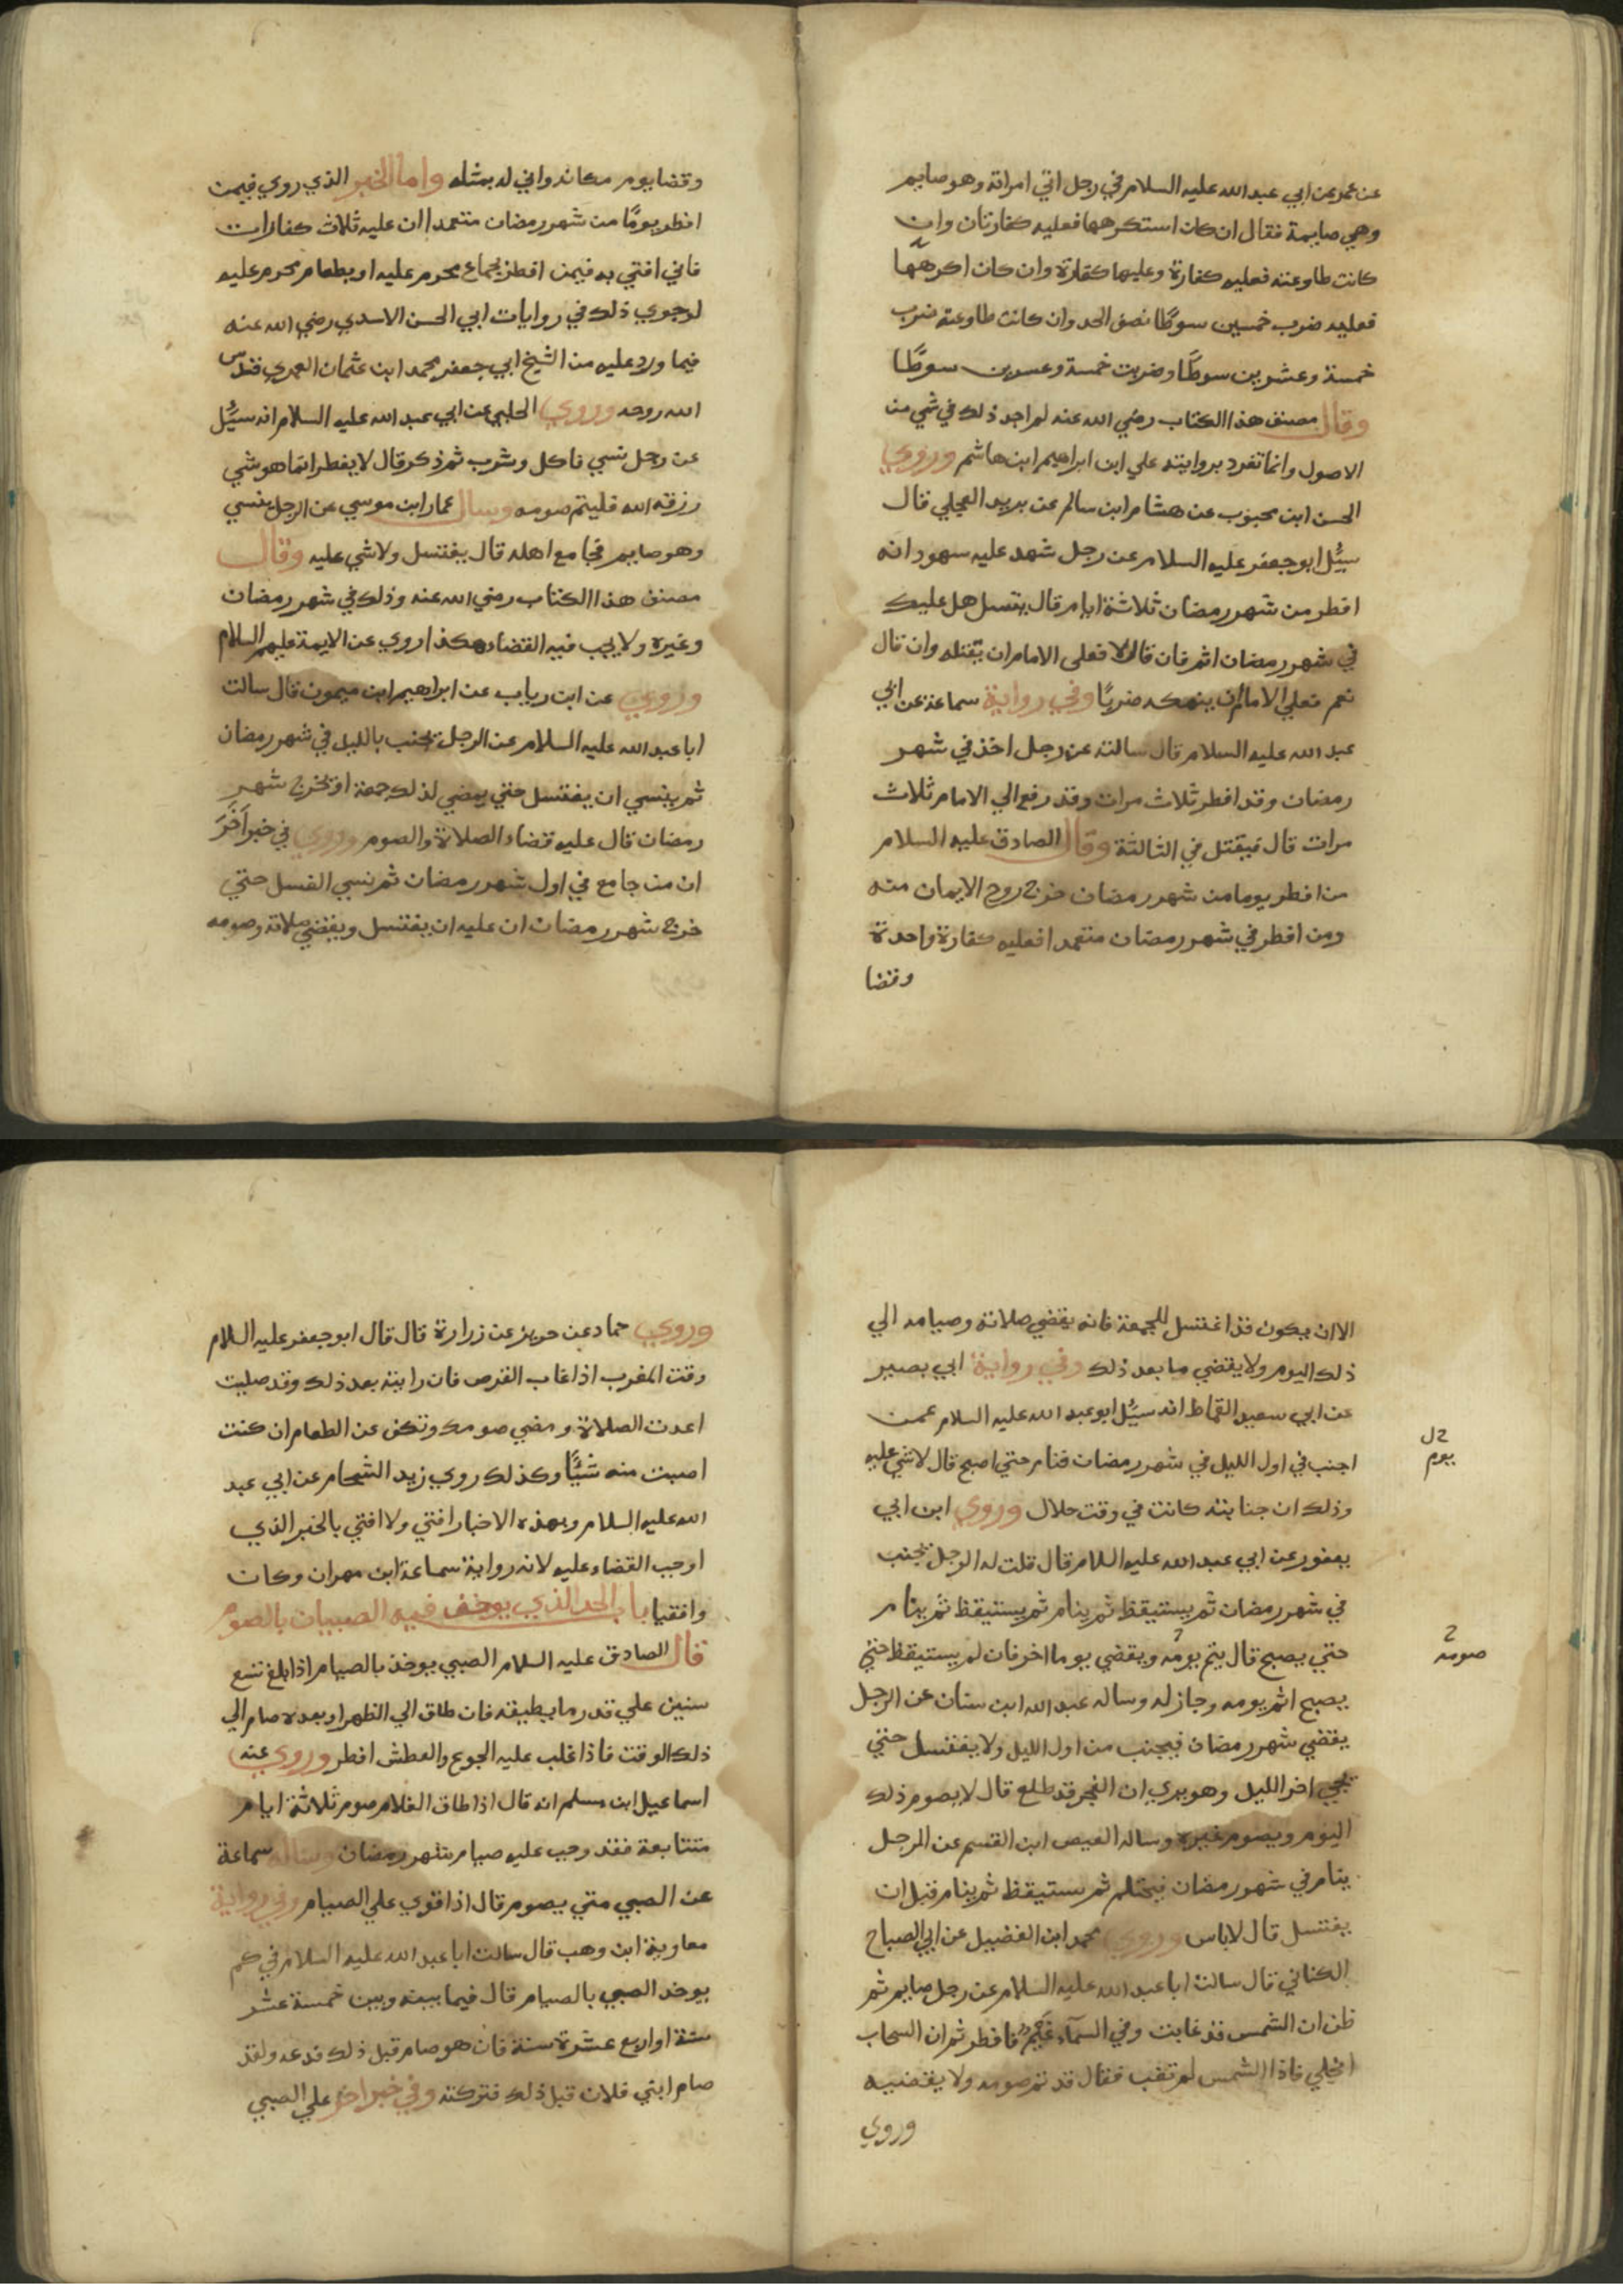 عن عمر عن ابي عبد الله عليه السلام في رجل اتي امراته وهو صايم
وهي صايمة فقال ان كان استكرهها فعليه كفارتان وان
كانت طاوعته فعليه كفارة وعليها كفارة وان كان اكرهها
فعليه ضرب خمسين سوطا نصف الحد وان كانت طاوعته ضرب
خمسة وعشرين سوطا وضربت خمسة وعسرين سوطا
وقال مصنف هذا الكتاب رضي الله عنه لم اجد ذلك في شي من
الاصول وانما تفرد بروايته علي ابن ابراهيم ابن هاشم وروي
الحسن ابن محبوب عن هشام ابن سالم عن بريد العجلي قال
سيُل ابو جعفر عليه السلام عن رجل شهد عليه سهود انه
افطر من شهر رمضان ثلاثة ايام قال يتسل هل عليك
في شهر رمضان اثم فان قال لا فعلي الامام ان يقتله وان قال
نعم فعلي الامام ان ينهكه ضربًا وفي رواية سماعة عن ابي
عبد الله عليه السلام قال سالته عن رجل اخذ في شهر
رمضان وقد افطر ثلاث مرات وقد رفع الي الامام ثلاث
مرات قال فيقتل في الثالثة وقال الصادق عليه السلام
من افطر يوما من شهر رمضان خرج روح الايمان منه
ومن افطر في شهر رمضان متعمدا فعليه كفارة واحدة
وقضا
وقضا يوم مكانه واني له بمثله واما الخبر الذي روي فيمن
افطر يومًا من شهر رمضان متعمدا ان عليه ثلاث كفارات
فاني افتي به فيمن افطر بجماع محرم عليه او بطعام محرم عليه
لوجوي ذلك في روايات ابي الحسن الاسدي رضي الله عنه
فيما ورد عليه من الشيخ ابي جعفر محمد ابن عثمان العمري قدس
الله روحه وروي الحلبي عن ابي عبد الله عليه السلام انه سيُل
عن رجل نسي فاكل وشرب ثم ذكر قال لا يفطر انما هو شي
رزقه الله فليتم صومه وسال عمار ابن موسي عن الرجل ينسي
وهو صايم فجامع اهله قال يغتسل ولا شي عليه وقال
مصنف هذا الكتاب رضي الله عنه وذلك في شهر رمضان
وغيره ولا يجب فيه القضاء هكذا روي عن الايمة عليهم السلام
وروي عن ابن رياب عن ابراهيم ابن ميمون قال سالت
ابا عبد الله عليه السلام عن الرجل يجنب بالليل في شهر رمضان
ثم ينسي ان يغتسل حتي يمضي لذلك جمعة او يخرج شهر
رمضان قال عليه قضاء الصلاة والصوم وروي في خبر اخر
ان من جامع في اول شهر رمضان ثم نسي الغسل حتي
خرج شهر رمضان ان عليه ان يغتسل ويقضي صلاته وصومه
الا ان يكون قد اغتسل للجمعة فانه يقضي صلاته وصيامه الي
ذلك اليوم ولا يقضي ما بعد ذلك وفي رواية ابي بصير
عن ابي سعيد القماط انه سيُل ابو عبد الله عليه السلام عمن
اجنب في اول الليل في شهر رمضان فنام حتي اصبح قال لا شي عليه
وذلك ان جنابته كانت في وقت حلال وروي ابن ابي
يعفور عن ابي عبد الله عليه السلام قال قلت له الرجل يجنب
في شهر رمضان ثم يستيقظ ثم ينام ثم يستيقظ ثم ينام
حتي يصبح قال يتم يومه ويقضي يوما اخر فان لم يستيقظ حتي
يصبح اتم يومه وجاز له وساله عبد الله ابن سنان عن الرجل
يقضي شهر رمضان فيجنب من اول الليل ولا يغتسل حتي
يجي اخر الليل وهو يري ان الفجر قد طلع قال لا يصوم ذلك
اليوم ويصوم غيره وساله العيص ابن القسم عن الرجل
ينام في شهر رمضان فيحتلم ثم يستيقظ ثم ينام قبل ان
يغتسل قال لا باس وروي محمد ابن الفضيل عن ابي الصباح
الكناني قال سالت ابا عبد الله عليه السلام عن رجل صايم ثم
ظن ان الشمس قد غابت وفي السماء غيم فافطر ثم ان السحاب
انجلي فاذا الشمس لم تغب فقال قد تم صومه ولا يقضيه
وروي
يوم
صومه
وروي حماد عن حريز عن زرارة قال قال ابو جعفر عليه السلام
وقت المغرب اذا غاب القرص فان رايته بعد ذلك وقد صليت
اعدت الصلاة ومضي صومك وتكف عن الطعام ان كنت
اصبت منه شيًا وكذلك روي زيد الشحام عن ابي عبد
الله عليه السلام وبهذه الاخبار افتي ولا افتي بالخبر الذي
اوجب القضاء عليه لانه رواية سماعة ابن مهران وكان
واقفيا باب الحد الذي يوخذ فيه الصبيان بالصوم
قال الصادق عليه السلام الصبي يوخذ بالصيام اذا بلغ تسع
سنين علي قدر ما يطيقه فان طاق الي الظهر او بعده صام الي
ذلك الوقت فاذا غلب عليه الجوع والعطش افطر وروي عنه
اسماعيل ابن مسلم انه قال اذا طاق الغلام صوم ثلاثة ايام
متتابعة فقد وجب عليه صيام شهر رمضان وساله سماعة
عن الصبي متي يصوم قال اذا قوي علي الصيام وفي رواية
معاوية ابن وهب قال سالت ابا عبد الله عليه السلام في كم
يوخذ الصبي بالصيام قال فيما بينه وبين خمسة عشر
سنة او اربع عشرة سنة فان هو صام قبل ذلك فدعه ولقد
صام ابني فلان قبل ذلك فتركته وفي خبر اخر علي الصبي